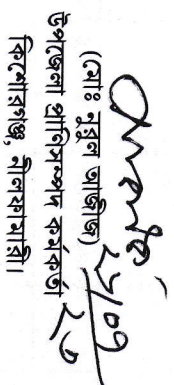 (মোঃ নুরুল আজীজ)
উপজেলা প্রাণিসম্পদ কর্মকর্তা
কিশোরগঞ্জ, নীলফামারী।